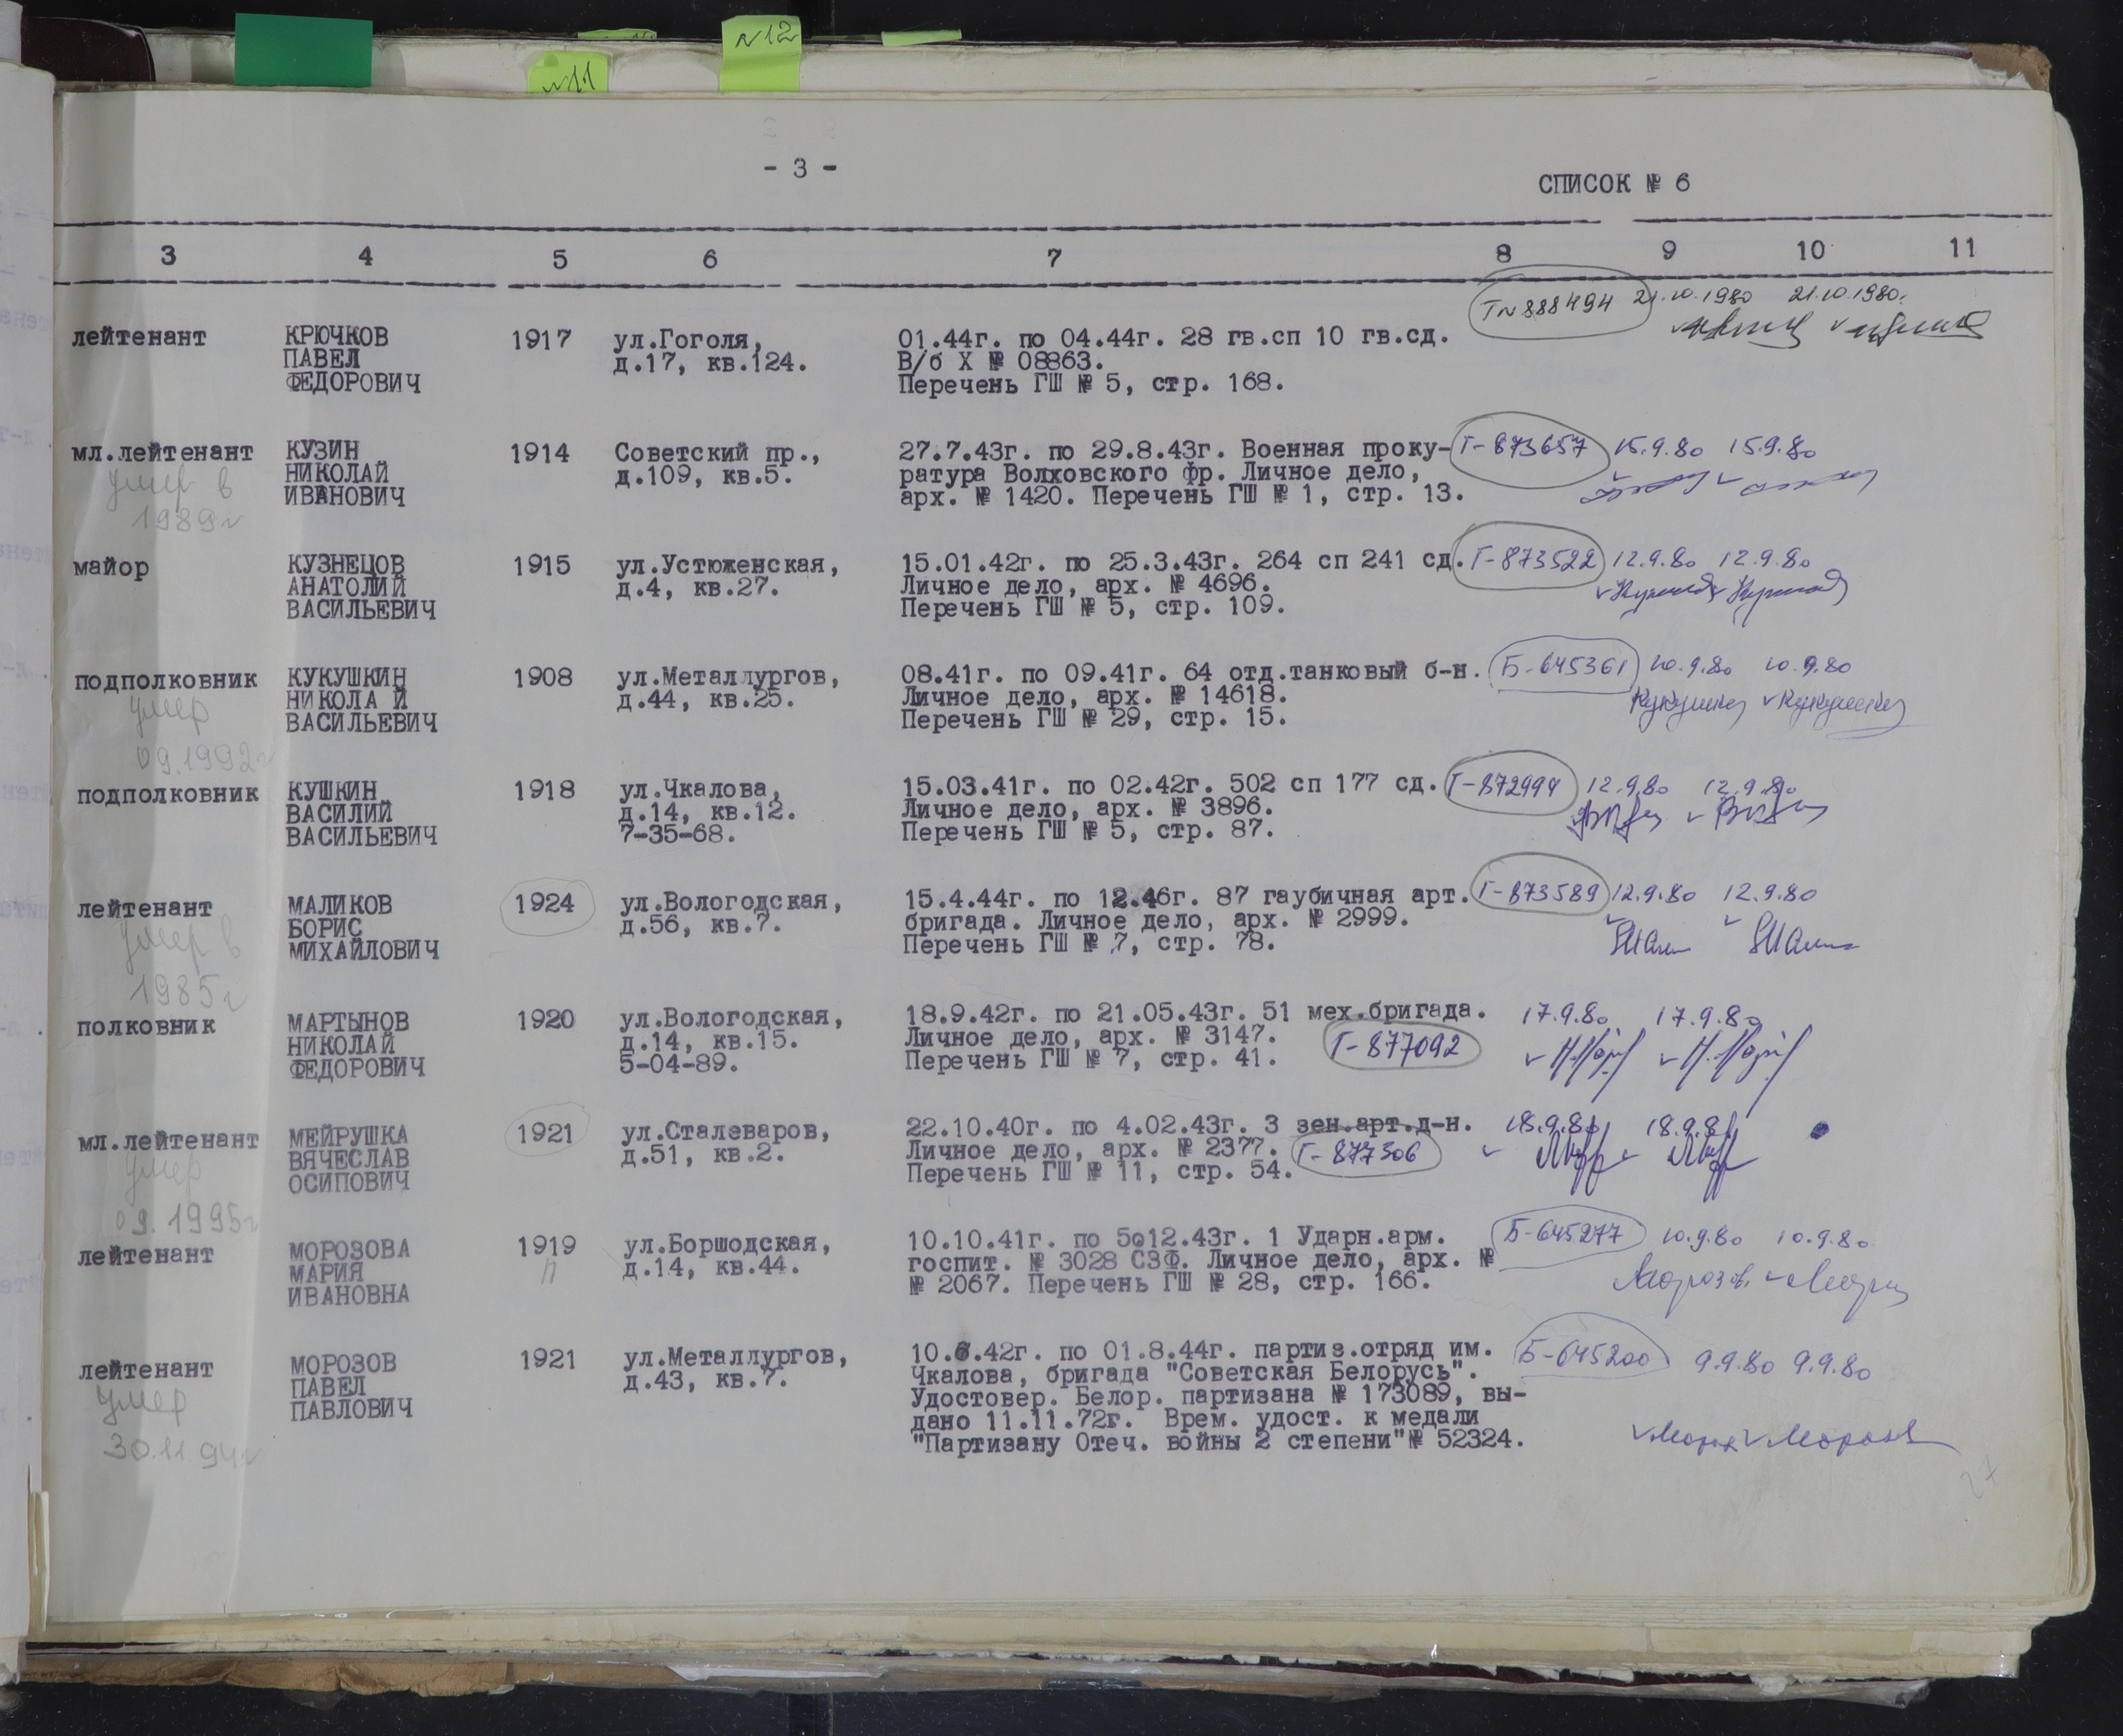 №12
№11
- 3 -
СПИСОК № 6
3 4 5 6 7 8 9 10 11
Т№888494 21.10.1980 21.10.1980.
лейтенант КРЮЧКОВ 1917 ул.Гоголя, 01.44г. по 04.44г. 28 гв.сп 10 гв.сд.
ПАВЕЛ д.17, кв.124. В/б Х № 08863.
ФЕДОРОВИЧ Перечень ГШ № 5, стр. 168.
мл.лейтенант КУЗИН 1914 Советский пр., 27.7.43г. по 29.8.43г. Военная проку- Г-873657 15.9.80 15.9.80
умер в НИКОЛАЙ д.109, кв.5. ратура Волховского фр. Личное дело,
1989г ИВАНОВИЧ арх. № 1420. Перечень ГШ № 1, стр. 13.
майор КУЗНЕЦОВ 1915 ул.Устюженская, 15.01.42г. по 25.3.43г. 264 сп 241 сд. Г-873522 12.9.80 12.9.80
АНАТОЛИЙ д.4, кв.27. Личное дело, арх. № 4696.
ВАСИЛЬЕВИЧ Перечень ГШ № 5, стр. 109.
подполковник КУКУШКИН 1908 ул.Металлургов, 08.41г. по 09.41г. 64 отд.танковый б-н. Б-645361 10.9.80 10.9.80
умер НИКОЛА Й д.44, кв.25. Личное дело, арх. № 14618.
09.1992г ВАСИЛЬЕВИЧ Перечень ГШ № 29, стр. 15.
подполковник КУШКИН 1918 ул.Чкалова, 15.03.41г. по 02.42г. 502 сп 177 сд. Г-872999 12.9.80 12.9.80
ВАСИЛИЙ д.14, кв.12. Личное дело, арх. № 3896.
ВАСИЛЬЕВИЧ 7-35-68. Перечень ГШ № 5, стр. 87.
лейтенант МАЛИКОВ 1924 ул.Вологодская, 15.4.44г. по 12.46г. 87 гаубичная арт. Г-873589 12.9.80 12.9.80
умер в БОРИС д.56, кв.7. бригада. Личное дело, арх. № 2999.
1985г МИХАЙЛОВИЧ Перечень ГШ № 7, стр. 78.
полковник МАРТЫНОВ 1920 ул.Вологодская, 18.9.42г. по 21.05.43г. 51 мех.бригада. 17.9.80 17.9.80
НИКОЛАЙ д.14, кв.15. Личное дело, арх. № 3147. Г-877092
ФЕДОРОВИЧ 5-04-89. Перечень ГШ № 7, стр. 41.
мл.лейтенант МЕЙРУШКА 1921 ул.Сталеваров, 22.10.40г. по 4.02.43г. 3 зен.арт.д-н. 18.9.80 18.9.80
умер ВЯЧЕСЛАВ д.51, кв.2. Личное дело, арх. № 2377. Г-877306
09.1995г ОСИПОВИЧ Перечень ГШ № 11, стр. 54.
лейтенант МОРОЗОВА 1919 ул.Боршодская, 10.10.41г. по 5.12.43г. 1 Ударн.арм. Б-645277 10.9.80 10.9.80
МАРИЯ д.14, кв.44. госпит. № 3028 СЗФ. Личное дело, арх. №
ИВАНОВНА № 2067. Перечень ГШ № 28, стр. 166.
лейтенант МОРОЗОВ 1921 ул.Металлургов, 10.6.42г. по 01.8.44г. партиз.отряд им. Б-645200 9.9.80 9.9.80
умер ПАВЕЛ д.43, кв.7. Чкалова, бригада "Советская Белорусь".
30.11.94г ПАВЛОВИЧ Удостовер. Белор. партизана № 173089, вы-
дано 11.11.72г. Врем. удост. к медали
"Партизану Отеч. войны 2 степени"№ 52324.